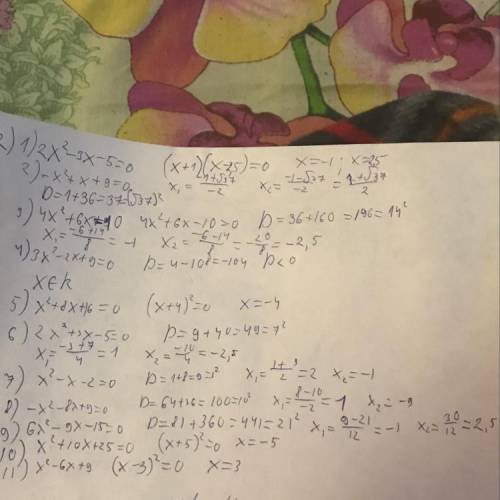 2) 1) 2x²-3x-5=0 (x+1)(x-2,5)=0 x=-1; x=2,5
2) -x²+x+9=0 x₁=(-1+√37)/-2 x₂=(-1-√37)/-2=(1+√37)/2
D=1+36=37=(√37)²
3) 4x²+6x=10 4x²+6x-10=0 D=36+160=196=14²
x₁=(-6+14)/8=-1 x₂=(-6-14)/8=-20/8=-2,5
4) 3x²-2x+9=0 D=4-108=-104 D<0
x∈R
5) x²+8x+16=0 (x+4)²=0 x=-4
6) 2x²+3x-5=0 D=9+40=49=7²
x₁=(-3+7)/4=1 x₂=-10/4=-2,5
7) x²-x-2=0 D=1+8=9=3² x₁=(1+3)/2=2 x₂=-1
8) -x²-8x+9=0 D=64+36=100=10² x₁=(8-10)/-2=1 x₂=-9
9) 6x²-9x-15=0 D=81+360=441=21² x₁=(9-21)/12=-1 x₂=30/12=2,5
10) x²+10x+25=0 (x+5)²=0 x=-5
11) x²-6x+9 (x-3)²=0 x=3